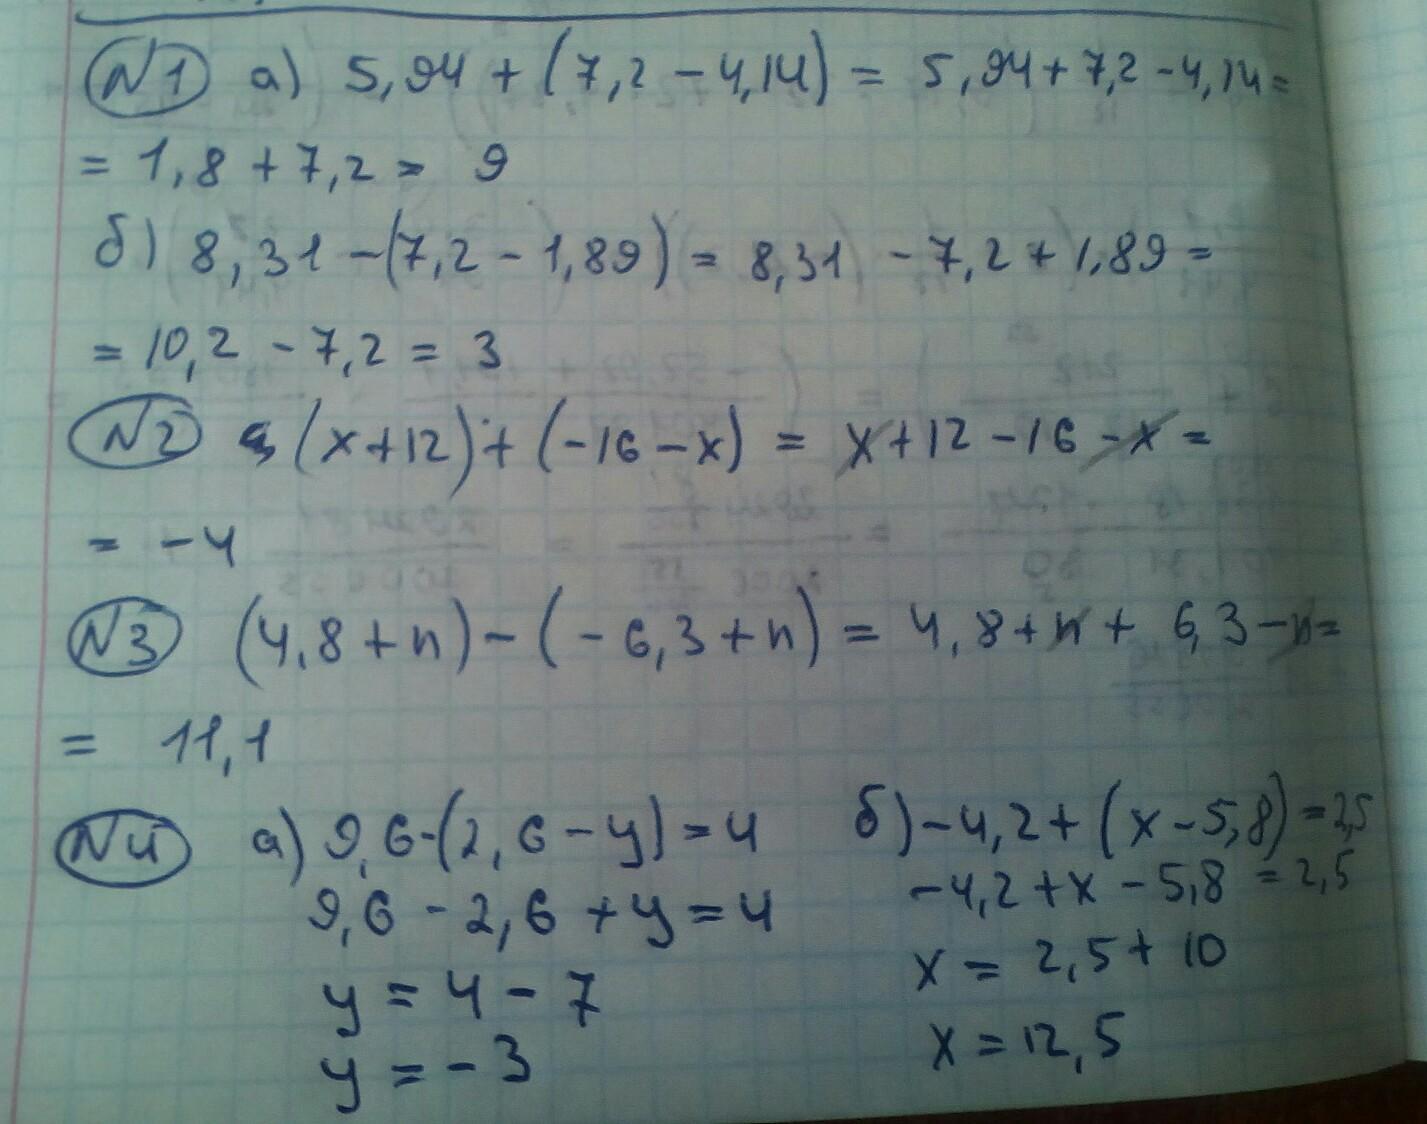 N1 а) 5,94 + (7,2 - 4,14) = 5,94 + 7,2 - 4,14 =
= 1,8 + 7,2 = 9
б) 8,31 - (7,2 - 1,89) = 8,31 - 7,2 + 1,89 =
= 10,2 - 7,2 = 3
N2 (x+12) + (-16 - x) = x + 12 - 16 - x =
= -4
N3 (4,8 + n) - (-6,3 + n) = 4,8 + n + 6,3 - n =
= 11,1
N4 а) 9,6 - (2,6 - y) = 4 б) -4,2 + (x - 5,8) = 2,5
9,6 - 2,6 + y = 4 -4,2 + x - 5,8 = 2,5
y = 4 - 7 x = 2,5 + 10
y = -3 x = 12,5